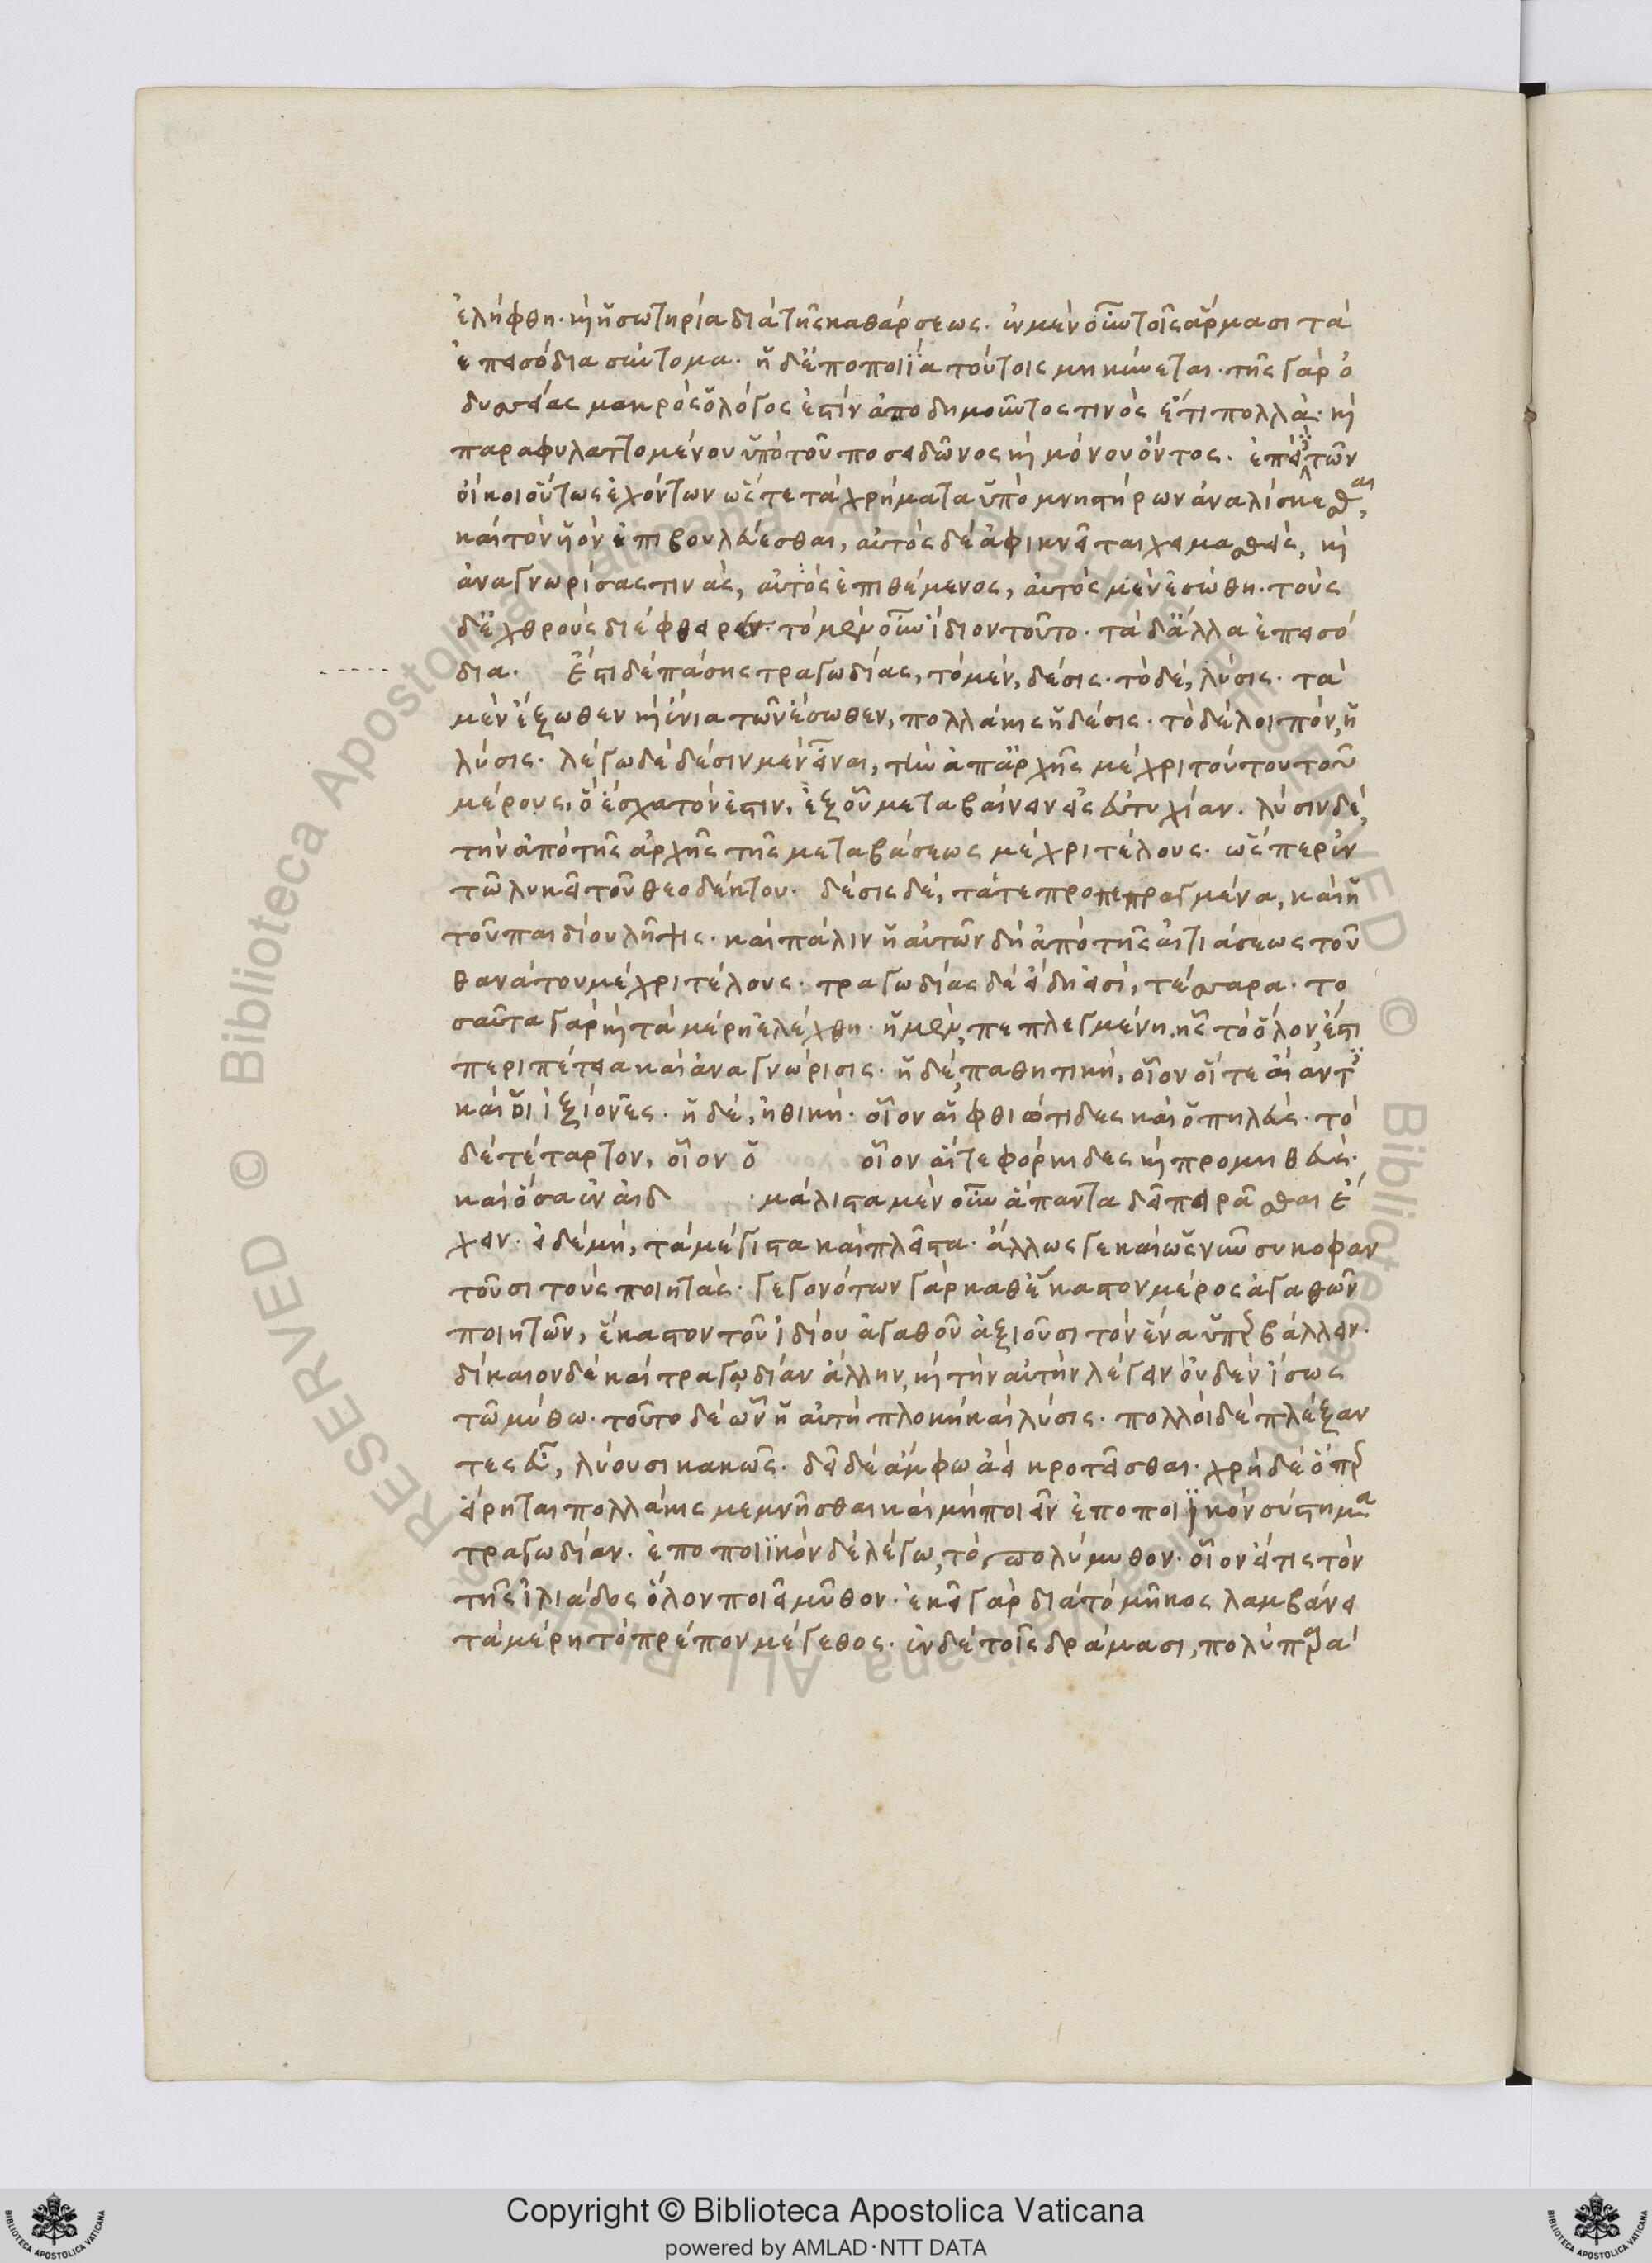 ἐλήφθη· καὶ ἡ σωτηρία διὰ τῆς καθάρσεως· ἐν μὲν οὖν τοῖς ἅρμασι τὰ
ἐπεισόδια σύντομα· ἡ δ' ἐποποιΐα τούτοις μηκύνεται· τῆς γὰρ ὀ
δυσσείας μακρὸς ὁ λόγος ἐστὶν ἀποδημοῦντος τινὸς ἔτη πολλὰ· καὶ
παραφυλαττομένου ὑπὸ τοῦ ποσειδῶνος καὶ μόνου ὄντος· ἐπεὶ τῶν
οἴκοι οὕτως ἐχόντων ὥστε τὰ χρήματα ὑπὸ μνηστήρων ἀναλίσκεσθαι,
καὶ τὸν υἱὸν ἐπιβουλεύεσθαι, αὐτὸς δὲ ἀφικνεῖται χειμασθείς, καὶ
ἀναγνωρίσας τινὰς, αὐτὸς ἐπιθέμενος, αὐτὸς μὲν ἐσώθη· τοὺς
δ' ἐχθροὺς διέφθειρεν· τὸ μὲν οὖν ἴδιον τοῦτο· τὰ δ' ἄλλα ἐπεισό
δια· Ἔστι δὲ πάσης τραγωδίας, τὸ μὲν, δέσις· τὸ δὲ, λύσις· τὰ
μὲν ἔξωθεν καὶ ἔνια τῶν ἔσωθεν, πολλάκις ἡ δέσις· τὸ δὲ λοιπὸν, ἡ
λύσις· λέγω δὲ δέσιν μὲν εἶναι, τὴν ἀπ' ἀρχῆς μέχρι τούτου τοῦ
μέρους, ὃ ἔσχατόν ἐστιν, ἐξ οὗ μεταβαίνειν εἰς εὐτυχίαν· λύσιν δὲ,
τὴν ἀπὸ τῆς ἀρχῆς τῆς μεταβάσεως μέχρι τέλους· ὥσπερ ἐν
τῶ λυκεῖ τοῦ θεοδέκτου· δέσις δὲ, τά τε προπεπραγμένα, καὶ ἡ
τοῦ παιδίου λῆψις· καὶ πάλιν ἡ αὐτῶν δὴ ἀπὸ τῆς αἰτιάσεως τοῦ
θανάτου μέχρι τέλους· τραγωδίας δὲ εἴδη εἰσὶ, τέσσαρα· το
σαῦτα γὰρ καὶ τὰ μέρη ἐλέχθη· ἡ μὲν, πεπλεγμένη, ἧς τὸ ὅλον, ἐστὶ
περιπέτεια καὶ ἀναγνώρισις· ἡ δὲ, παθητικὴ, οἷον οἵ τε αἴαντες
καὶ οἱ ἰξίονες· ἡ δὲ, ἠθικὴ· οἷον αἱ φθιώτιδες καὶ ὁ πηλεύς· τὸ
δὲ τέταρτον, οἷον ὁ οἷον αἵ τε φόρκιδες καὶ προμηθεύς·
καὶ ὅσα ἐν αιδ · μάλιστα μὲν οὖν ἅπαντα δεῖ πειρᾶσθαι ἔ
χειν· εἰ δὲ μὴ, τὰ μέγιστα καὶ πλεῖστα· ἄλλως γε καὶ ὡς νῦν συκοφαν
τοῦσι τοὺς ποιητάς· γεγονότων γὰρ καθ' ἕκαστον μέρος ἀγαθῶν
ποιητῶν, ἕκαστον τοῦ ἰδίου ἀγαθοῦ ἀξιοῦσι τὸν ἕνα ὑπερβάλλειν·
δίκαιον δὲ καὶ τραγωδίαν ἄλλην, καὶ τὴν αὐτὴν λέγειν οὐδὲν ἴσως
τῶ μύθω· τοῦτο δὲ ὧν ἡ αὐτὴ πλοκὴ καὶ λύσις· πολλοὶ δὲ πλέξαν
τες εὖ, λύουσι κακῶς· δεῖ δὲ ἄμφω ἀεὶ κροτεῖσθαι· χρὴ δὲ ὅπερ
εἴρηται πολλάκις μεμνῆσθαι καὶ μὴ ποιεῖν ἐποποιϊκὸν σύστημα
τραγωδίαν· ἐποποιϊκὸν δὲ λέγω, τὸ πολύμυθον· οἷον εἴ τις τὸν
τῆς ἰλιάδος ὅλον ποιεῖ μῦθον· ἐκεῖ γὰρ διὰ τὸ μῆκος λαμβάνει
τὰ μέρη τὸ πρέπον μέγεθος· ἐν δὲ τοῖς δράμασι, πολὺ παρὰ
Copyright © Biblioteca Apostolica Vaticana
powered by AMLAD·NTT DATA